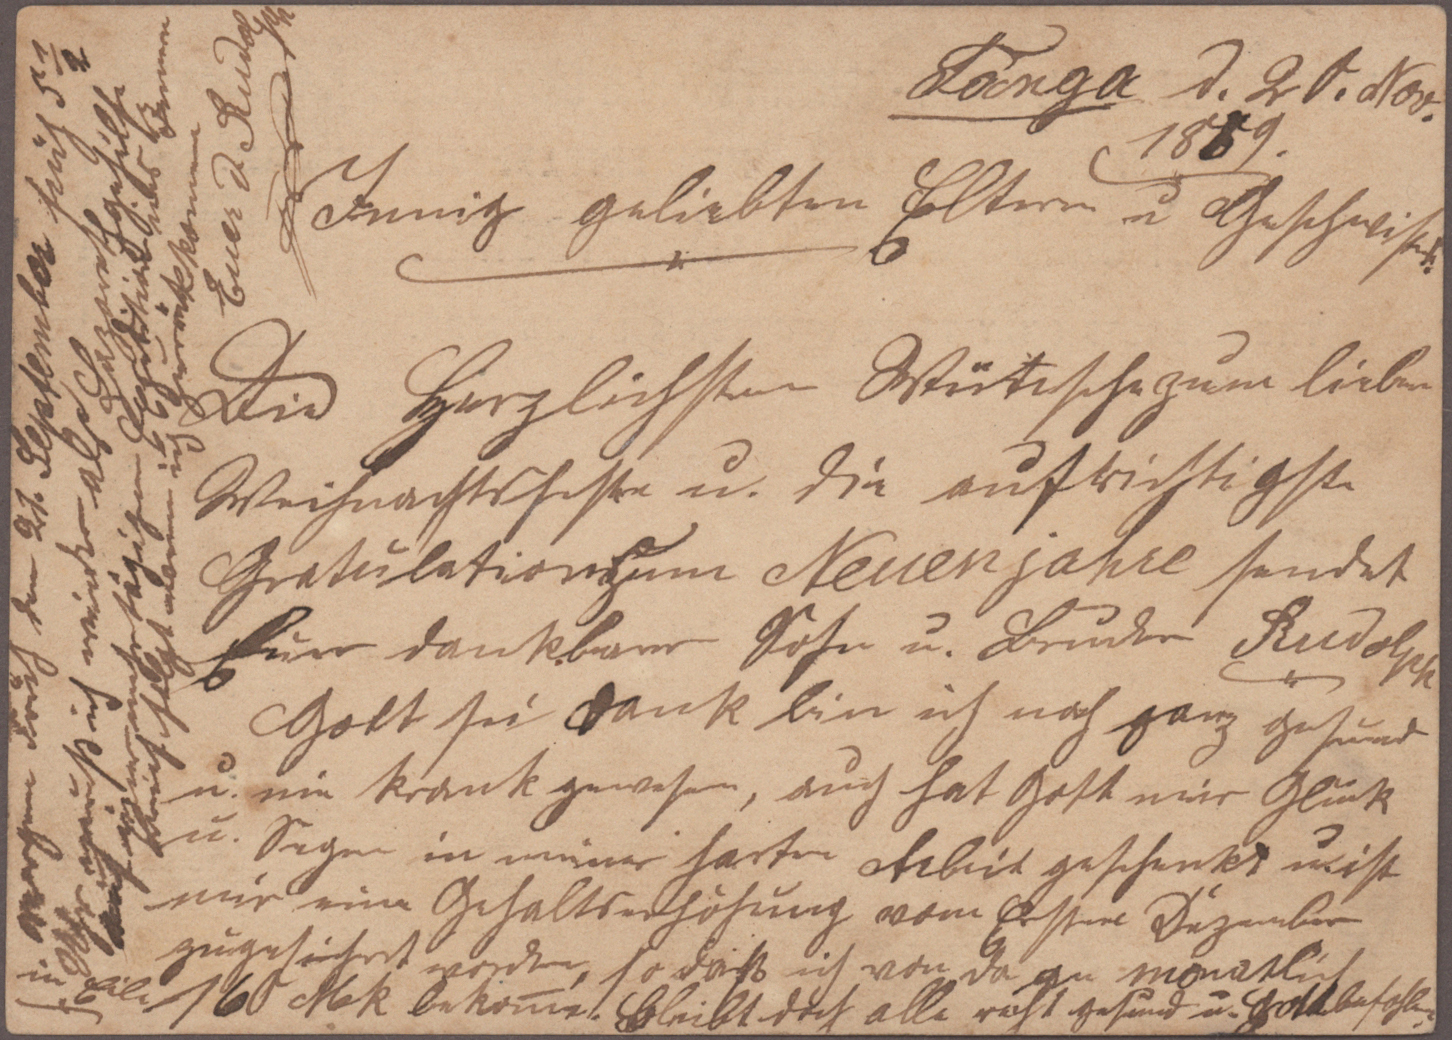 Tanga d. 20. Nov.
1889.
Innig geliebten Eltern u Geschwister.
Die Herzlichsten Wünsche zum lieben
Weihnachtsfeste u. die aufrichtigste
Gratulation zum Neuenjahre sendet
Euer dankbarer Sohn u. Bruder Rudolph
Gott sei Dank bin ich noch ganz gesund
u. nie krank gewesen, auch hat Gott mir Glück
u. Segen in meiner harten Arbeit geschenkt u. ist
mir eine Gehaltserhöhung vom Ersten Dezember
zugesichert worden, so daß ich von da an monatlich
160 Mk bekomme. Bleibt doch alle recht gesund u. Gott befohlen.
in Eile
morgen den 21. September früh 5 1/2
Uhr muß ich wieder als Lazarethgehülfe
Expedition ins Innere
ich zurückkomme
Euer d. Rudolph